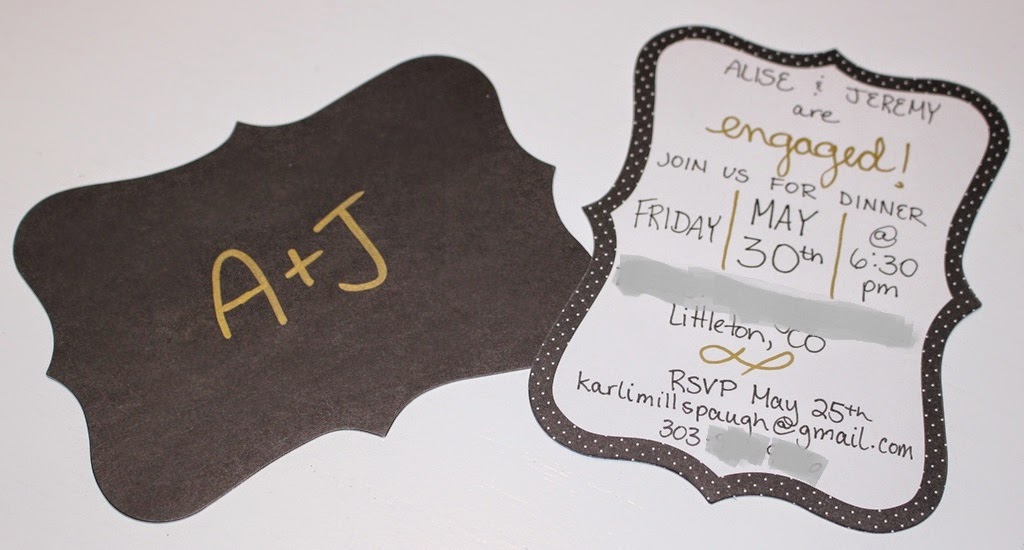 A+J
ALISE & JEREMY
are
engaged!
JOIN US FOR DINNER
FRIDAY | MAY 30th | @ 6:30 pm
Littleton, CO
RSVP May 25th
karlimillspaugh@gmail.com
303